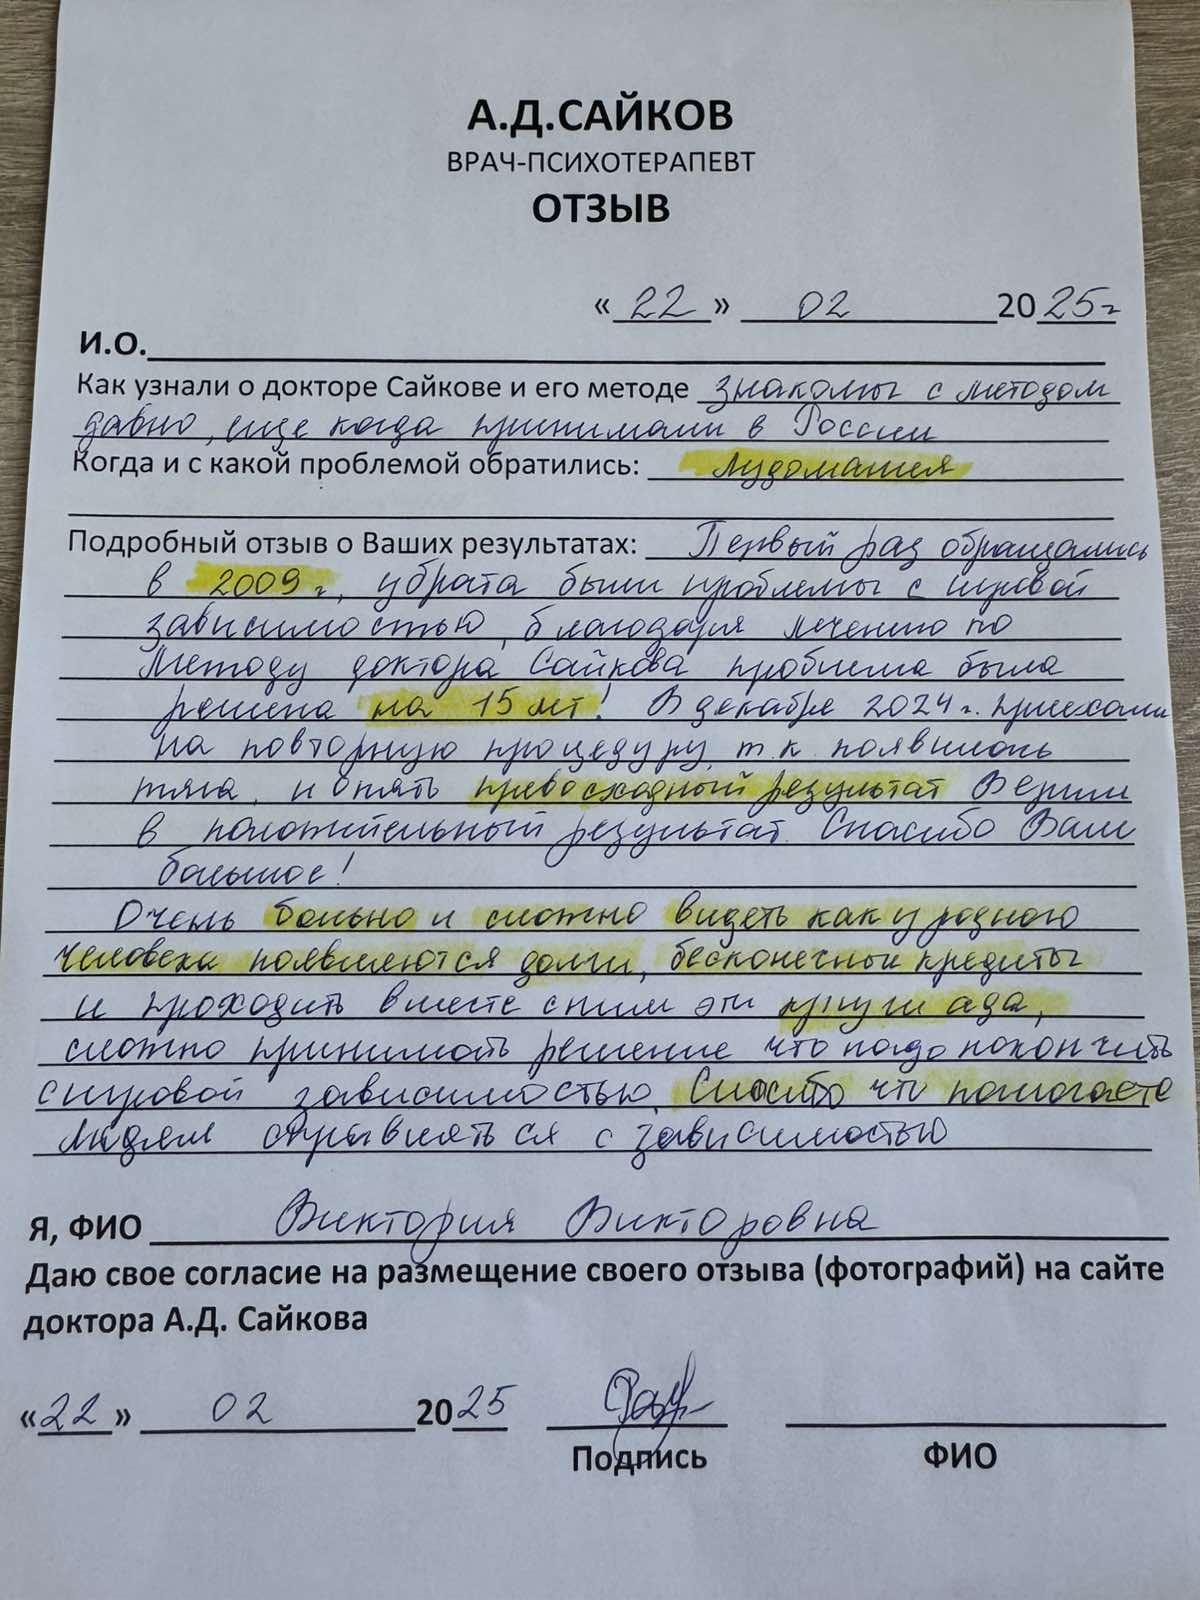 А.Д.САЙКОВ
ВРАЧ-ПСИХОТЕРАПЕВТ
ОТЗЫВ
«22» 02 2025г
И.О.
Как узнали о докторе Сайкове и его методе знакомы с методом
давно, еще когда принимали в России
Когда и с какой проблемой обратились: лудомания
Подробный отзыв о Ваших результатах: Первый раз обращались
в 2009 г, у брата были проблемы с игровой
зависимостью, благодаря лечению по
методу доктора Сайкова проблема была
решена на 15 лет! В декабре 2024 г. приехали
на повторную процедуру, т.к. появилась
тяга, и опять превосходный результат Верим
в положительный результат. Спасибо Вам
большое!
Очень больно и сложно видеть как у родного
человека появляются долги, бесконечные кредиты
и проходить вместе с ним эти круги ада,
сложно принимать решение что надо покончить
с игровой зависимостью. Спасибо что помогаете
людям справляться с зависимостью
Я, ФИО Виктория Викторовна
Даю свое согласие на размещение своего отзыва (фотографий) на сайте
доктора А.Д. Сайкова
«22» 02 2025
Подпись ФИО